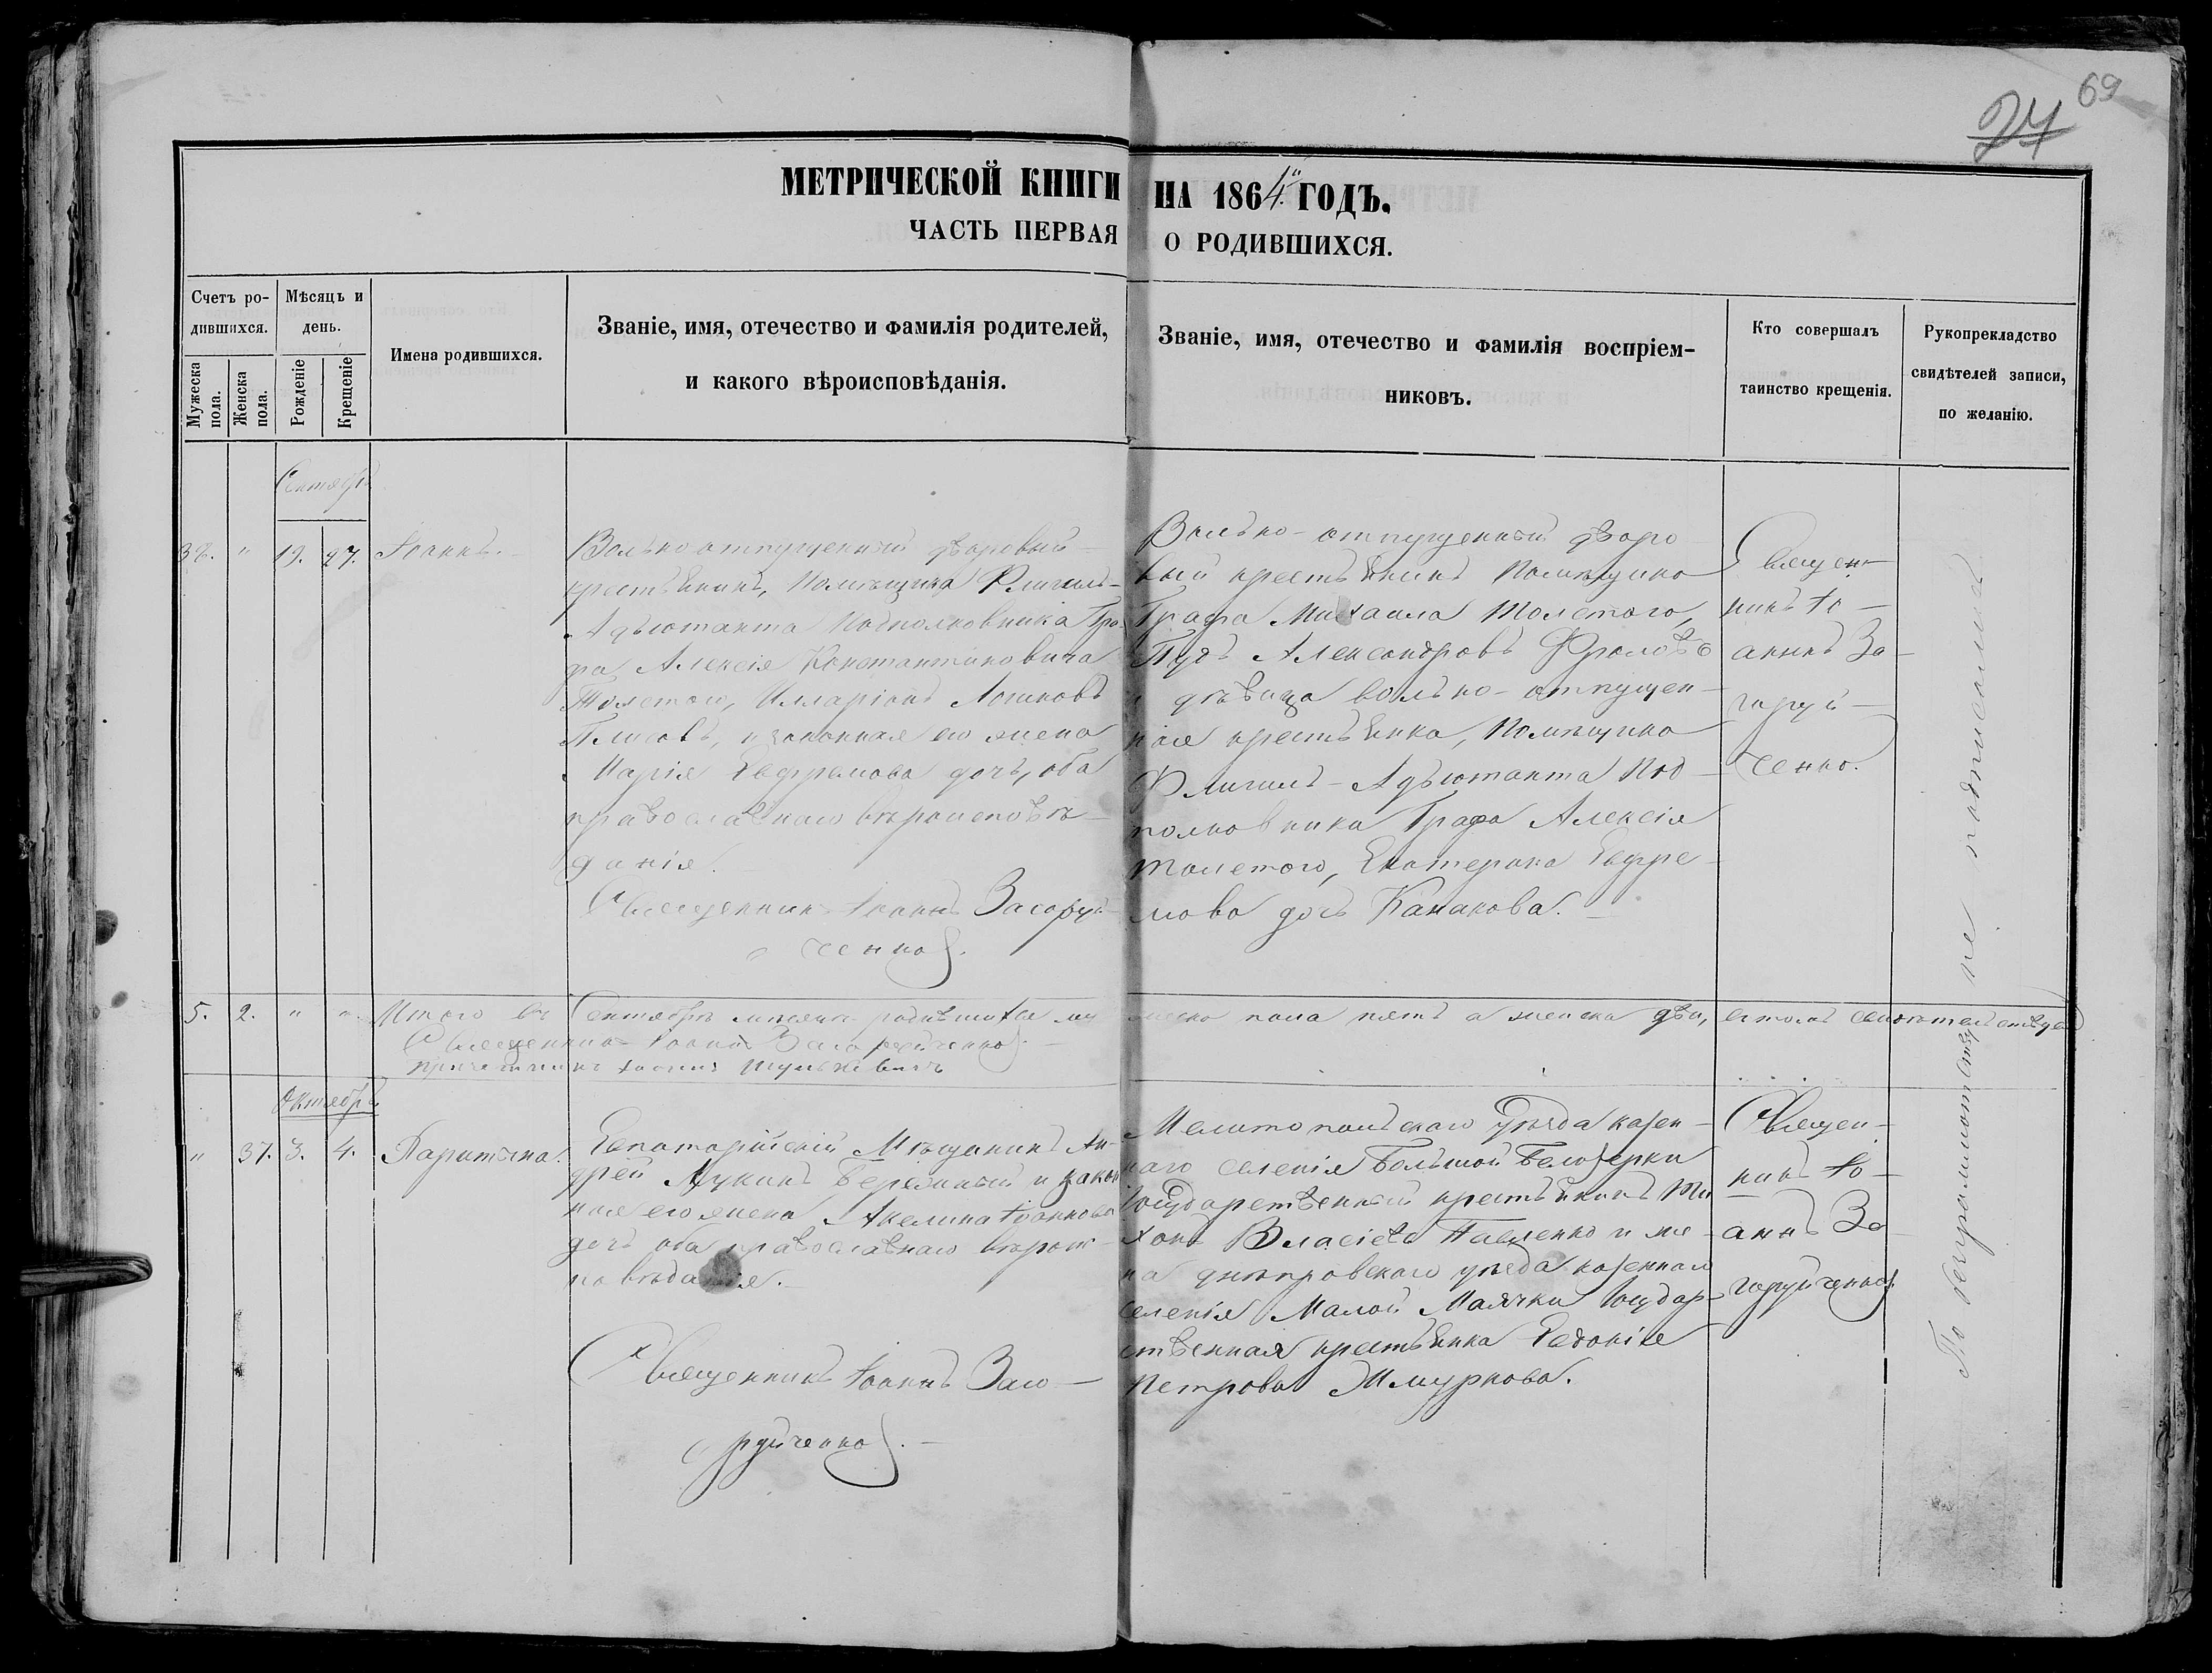 69
24
МЕТРИЧЕСКОЙ КНИГИ НА 1864 ГОДЪ.
ЧАСТЬ ПЕРВАЯ О РОДИВШИХСЯ.
Счетъ ро-
дившихся.
Мужеска пола.
Женска пола.
Мѣсяцъ и
день.
Рожденіе
Крещеніе
Имена родившихся.
Званіе, имя, отечество и фамилія родителей,
и какого вѣроисповѣданія.
Званіе, имя, отечество и фамилія воспріем-
никовъ.
Кто совершалъ
таинство крещенія.
Рукоприкладство
свидѣтелей записи,
по желанію.
Сентябрь
38. " 19. 27. Іоаннъ.
Вольноотпущенный дворовый
крестьянинъ, Помѣщика Флигель-
Адъютанта Подполковника Гра-
фа Алексія Константиновича
Толстого, Илларіонъ Логиновъ
и законная его жена
Марія Евфремова дочь, оба
православнаго вѣроисповѣ-
данія.
Священникъ Іоаннъ Загоруй-
ченко.
Вольно-отпущенный дворо-
вый крестьянинъ Помѣщика
Графа Михаила Толстого,
Александровъ Фроловъ
и дѣвица вольно-отпущен-
ная крестьянка, Помѣщика
Флигель-Адъютанта Под-
полковника Графа Алексія
Толстого, Екатерина Евфре-
мова дочь Канакова.
Священ-
никъ Іо-
аннъ За-
горуй-
ченко.
5. 2. " " Итого въ Сентябрѣ мѣсяцѣ родившихся му-
жеска пола пять а женска два, въ томъ свидѣтельствуемъ
Священникъ Іоаннъ Загоруйченко.
Причетникъ
Октябрь
" 37. 3. 4. Параскева.
Евпаторійскій Мѣщанинъ Ан-
дрей Лукинъ и закон-
ная его жена Акелина Іоаннова
дочь оба православнаго вѣроис-
повѣданія.
Священникъ Іоаннъ Заго-
руйченко.
Мелитопольскаго уѣзда казен-
наго селенія Большой Белозерки
Государственный крестьянинъ Ти-
хонъ Власіевъ Павленко и же-
на днѣпровскаго уѣзда казеннаго
селенія Малой Маячки Государ-
ственная крестьянка Евдокія
Петрова Шмуркова.
Священ-
никъ Іо-
аннъ За-
горуйченко.
По безграмотству не подписались